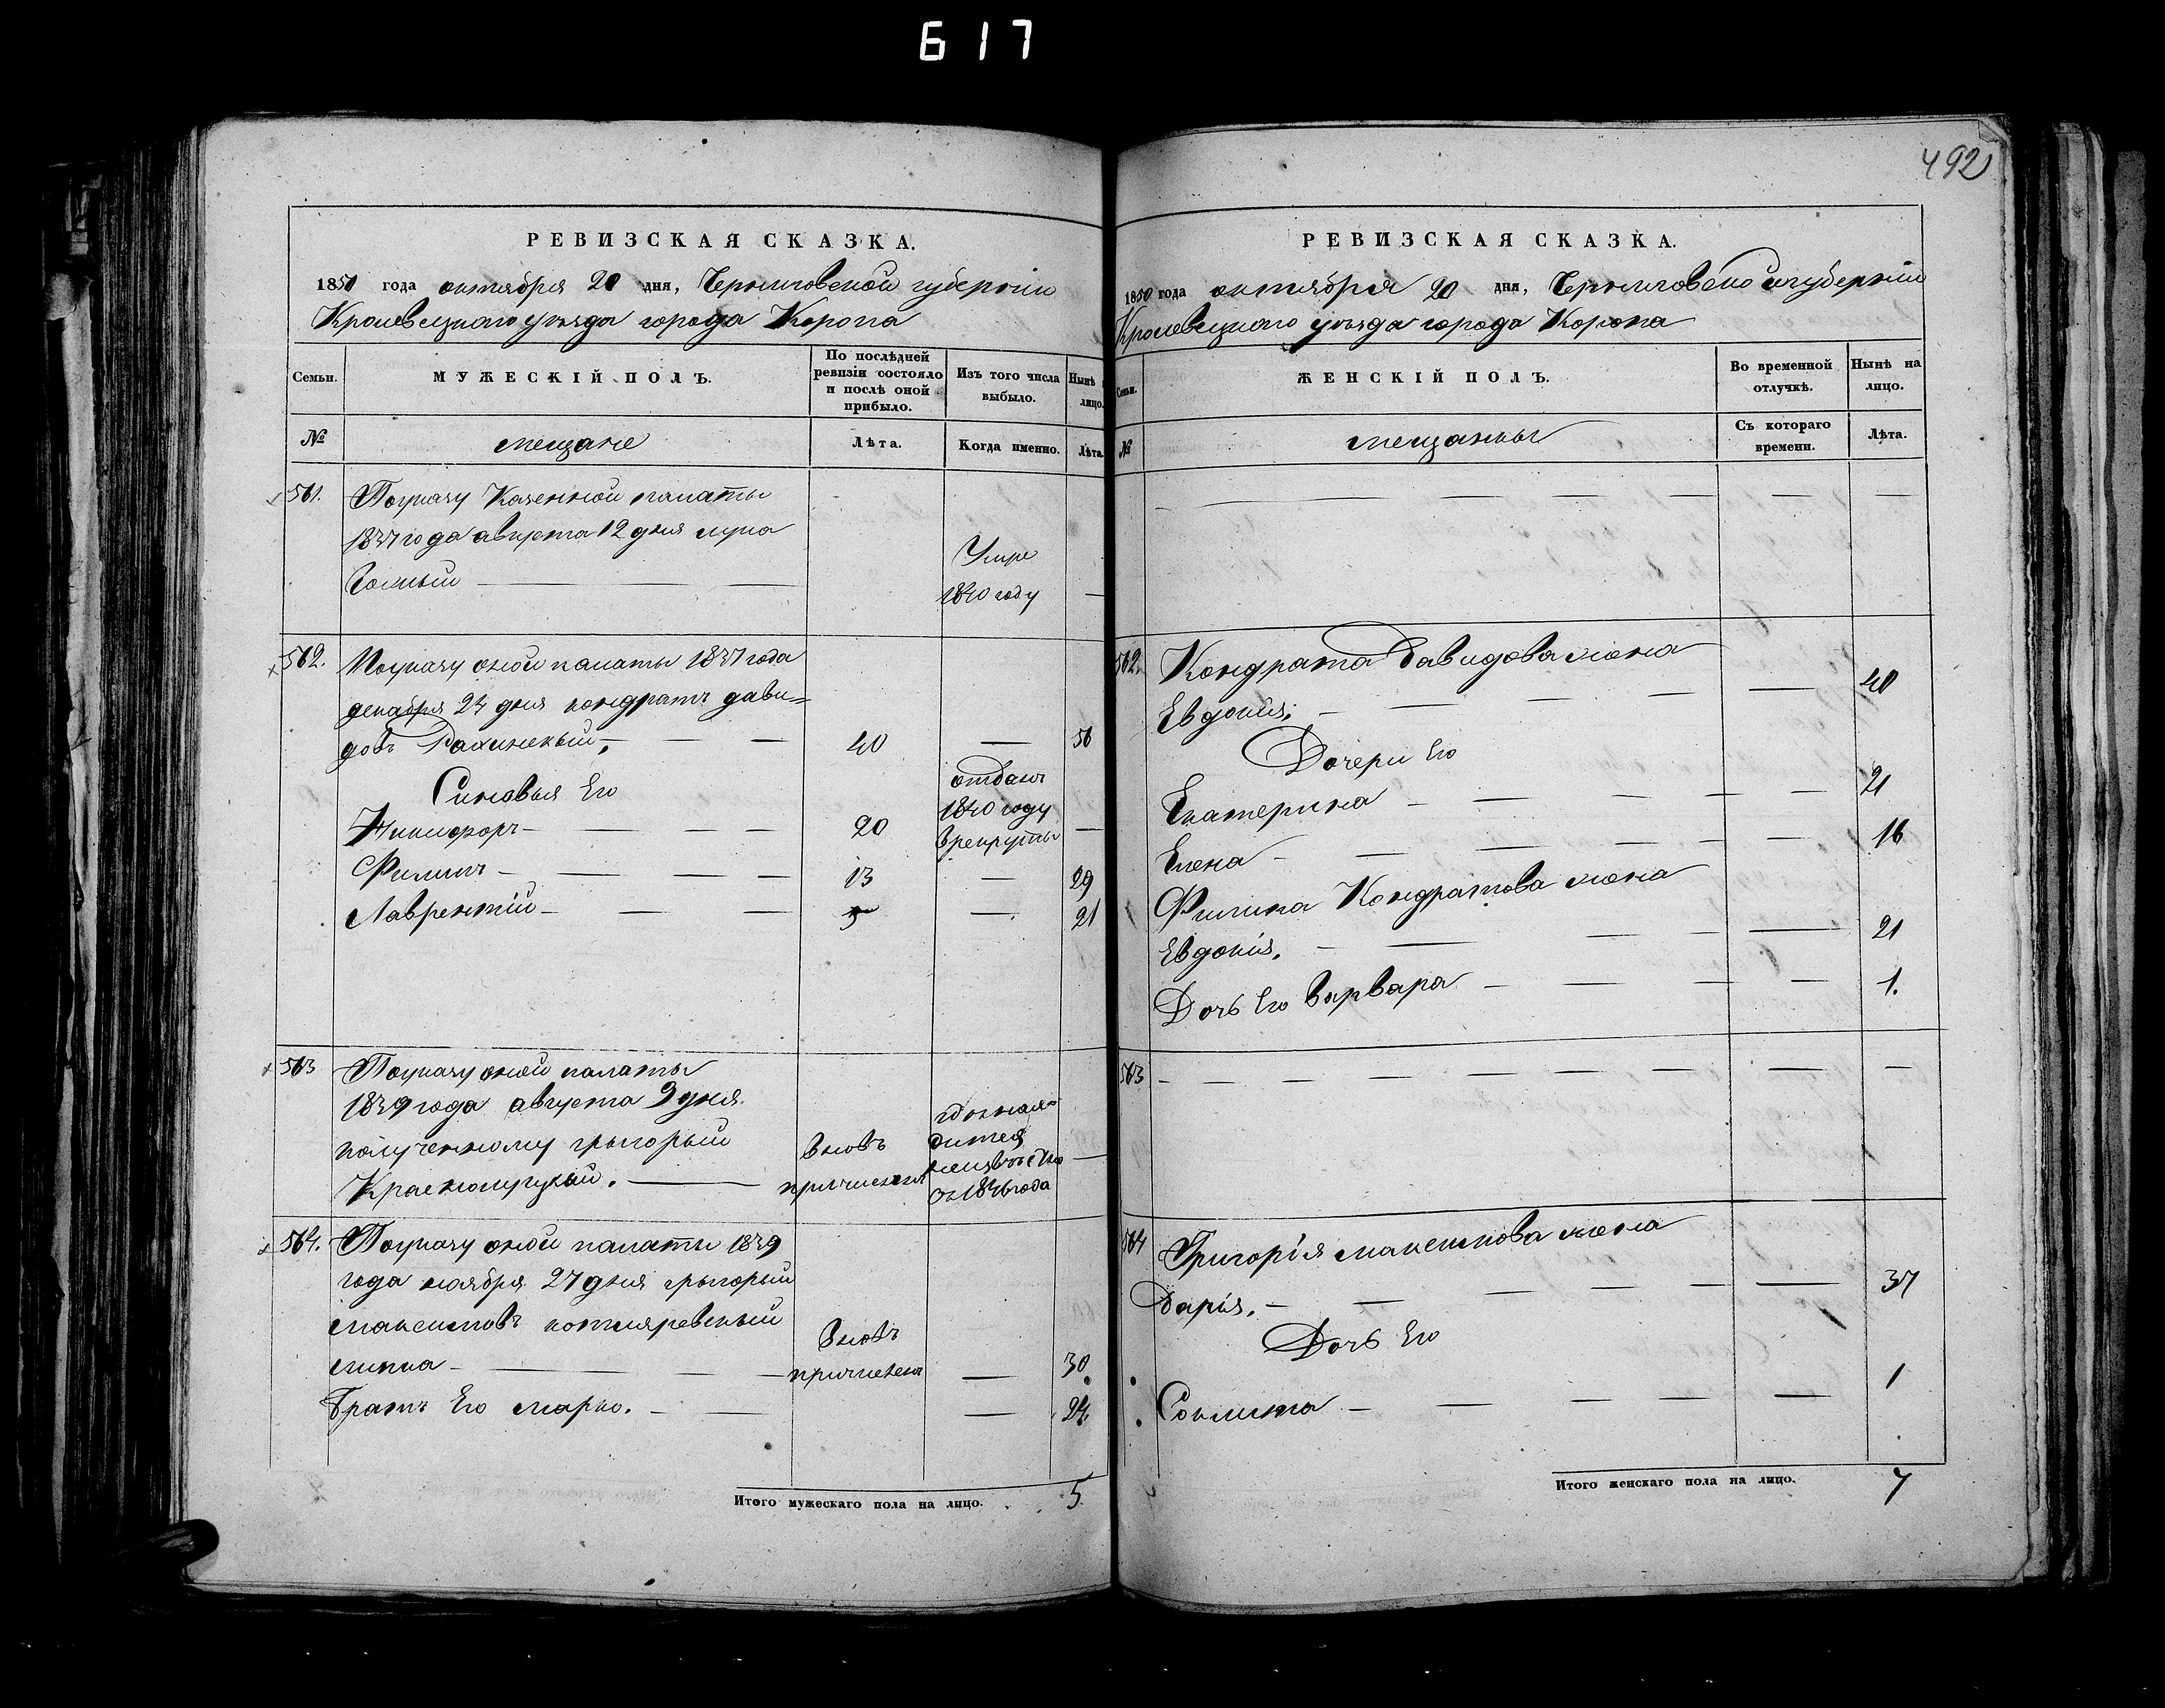 617
492
РЕВИЗСКАЯ СКАЗКА.
1850 года октября 20 дня, Черниговской губернии
Кролевецкаго уезда города Коропа
Семьи.
МУЖЕСКІЙ ПОЛЪ.
По послѣдней ревизіи состояло и послѣ оной прибыло.
Изъ того числа выбыло.
Нынѣ на лицо.
№
мещане
Лѣта.
Когда именно.
Лѣта.
561.
Поуказу Казенной палаты
1837 года августа 12 дня лука
Умре
1840 году
562.
Поуказу оной палаты 1837 года
декабря 24 дня кондратъ дави=
довъ
40
—
56
Синовья Его
Никифоръ
20
отданъ
1840 году
врекруты
—
Филипъ
13
—
29
Лаврентій
5
—
21
563
Поуказу оной палаты
1839 года августа 9 дня
полученному грыгорый
Вновь
причисленъ
неизвѣстно
съ 1846 года
—
564.
Поуказу оной палаты 1839
года ноября 27 дня грыгорый
максимовъ котляревский
Вновь
причисленъ
—
30
Братъ Его марко.
—
24.
Итого мужескаго пола на лицо.
5
РЕВИЗСКАЯ СКАЗКА.
1850 года октября 20 дня, Черниговской губернии
Кролевецкаго уезда города Коропа
Семьи.
ЖЕНСКІЙ ПОЛЪ.
Во временной отлучкѣ.
Нынѣ на лицо.
№
мещанки
Съ котораго времени.
Лѣта.
562.
Кондрата Давидова жена
Евдокия.
40
Дочери Его
Екатерина
21
Елена
16
Филипа Кондратова жена
Евдокія.
21
Дочь Его Варвара
1.
563
564
Григорія максимова жена
Дарія.
37
Дочь Его
1
Итого женскаго пола на лицо.
7